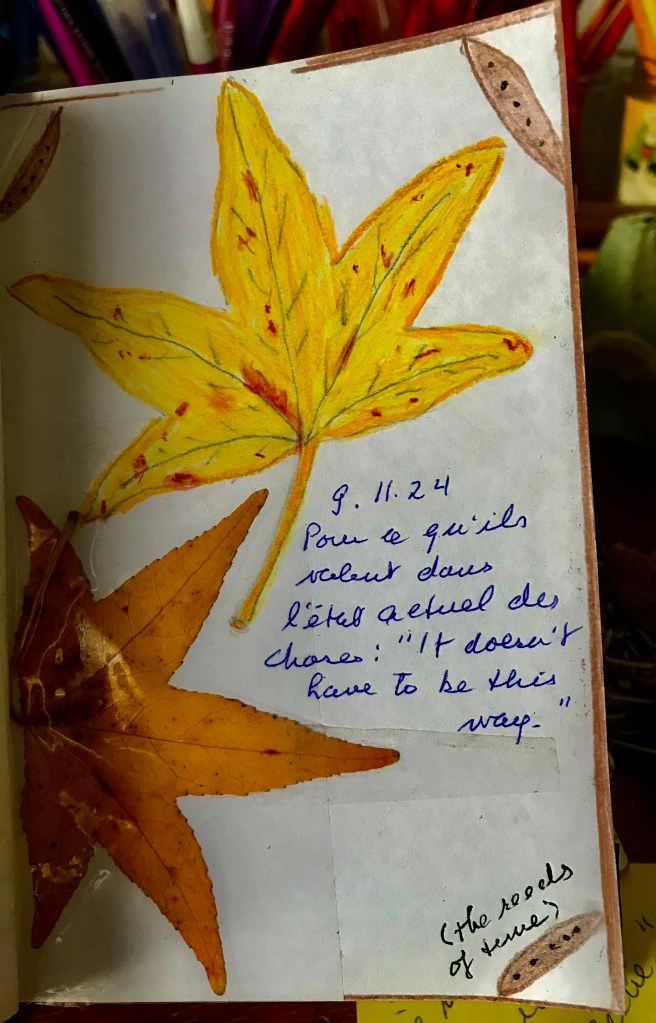 9.11.24
Pour ce qu'ils
valent dans
l'état actuel des
choses : "It doesn't
have to be this
way."
(the seeds
of time)